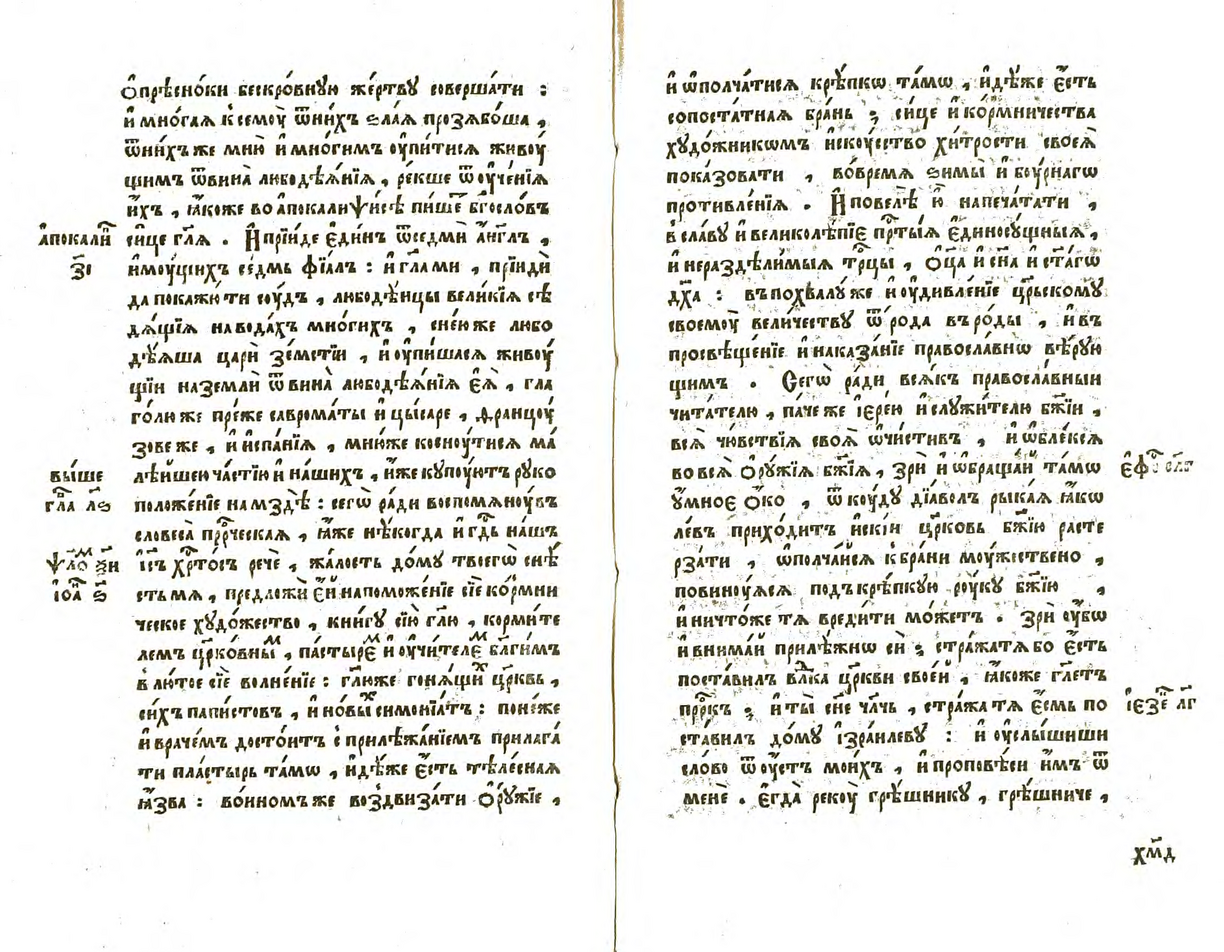 ѻ҆прѣсно́ки безкро́вную же́ртву соверша́ти :
и҆ мно́гаѧ к семоу̀ ѿни́хъ ѕла́ѧ прозѧбо́ша ,
ѿни́хъ же мню̀ и҆ мно́гимъ оу҆пи́тисѧ живоу́
щимъ ѿвина̀ любодѣѧ́нїѧ , ре́кше ѿоу҆че́нїѧ
и҆́хъ , ꙗ҆́коже во а҆покали́ѱисѣ пи́шеⷮ бг҃осло́въ
си́це гл҃ѧ . И҆ прїи́де є҆ди́нъ ѿседмѝ а҆́нг҃лъ ,
а҆покалиⷱ҇
з҃і
и҆моу́щихъ се́дмь фїа́лъ : и҆ гл҃а ми , прїидѝ
да покажю́ ти соу́дъ , любодѣ́ицы вели́кїѧ сѣ
дѧ́щїѧ на вода́хъ мно́гихъ , сне́ю же любо
дѣ́ѧша ца́рїе зе́мстїи , и҆ оу҆пи́шасѧ живоу́
щїи на землѝ ѿ вина̀ любодѣѧ́нїѧ є҆ѧ̀ , гла
го́лю же пре́же савром́аты и҆ цы́саре , францоу́
зове же , и҆ и҆спа́нїѧ , мню́же косноу́тисѧ ма
лѣ́йшею ча́стїю и҆ на́шихъ , и҆̀же купоу́ютъ руко
положе́нїе на мздѣ̀ : сегѡ̀ ра́ди воспомѧноу́въ
вы́ше
гл҃а л҃ѕ
словеса̀ прⷪ҇ро́ческаѧ , ꙗ҆̀же нѣ́когда и҆ гдⷭ҇ь на́шъ
і҆с҃ъ хрⷭ҇то́съ речѐ , жа́лость до́му твоегѡ̀ снѣ́
ѱаⷧ҇о́ⷨ ѯ҃и
і҆ѡа҆́ ѕ҃
сть мѧ , предложи́ є҆й на поможе́нїе сїѐ ко́рмни
ческое худо́жество , кни́гу сїю̀ гл҃ю , корми́те
лемъ цр҃ко́вныⷨ , па́стыреⷨ и҆ оу҆чи́телеⷨ бл҃ги́мъ
в лю́тое сїѐ волне́нїе : гл҃ю́же гонѧ́щиⷯ цр҃квь ,
си́хъ папи́стовъ , и҆ но́выⷯ симонїа́тъ : поне́же
и҆ врачє́мъ досто́итъ с прилѣжа́нїемъ прилага́
ти пла́стырь та́мѡ , и҆дѣ́же є҆́сть тѣле́снаѧ
ꙗ҆́зва : во́иномъ же воздвиза́ти ѻ҆ру́жїе ,
и҆ ѡ҆полча́тисѧ крѣ́пкѡ та́мѡ , и҆дѣ́же є҆́сть
сопоста́тнаѧ бра́нь ; си́це и҆ ко́рмничества
худо́жникѡмъ и҆скоу́ство хи́трости своеѧ̀
пока́зовати , во́времѧ ѕимы̀ и҆ боу́рнагѡ
противле́нїѧ . И҆ повелѣ̀ ю҆̀ напеча́тати ,
в сла́ву и҆ великолѣ́пїе прⷭ҇ты́ѧ є҆диносу́щныѧ ,
и҆ нераздѣли́мыѧ трⷪ҇цы , ѻ҆ц҃а̀ и҆ сн҃а и҆ ст҃а́гѡ
дх҃а : въ похвалу́ же и҆ оу҆дивле́нїе црⷭ҇кому
своемоу̀ вели́честву ѿ ро́да въ ро́ды , и҆ въ
просвѣще́нїе и҆ наказа́нїе правосла́внѡ вѣ́рую
щимъ . Сегѡ̀ ра́ди всѧ́къ правосла́вныи
чита́телю , па́че же і҆ере́ю и҆ служи́телю бж҃їи ,
всѧ̀ чю́вствїѧ своѧ̀ ѡ҆чи́стивъ , и҆ ѡ҆бле́ксѧ
во всѧ̀ ѻ҆ру́жїѧ бж҃їѧ , зрѝ и҆ ѡ҆браща́й та́мѡ
оу҆́мное ѻ҆́ко , ѿ коу́ду дїа́волъ рыка́ѧ ꙗ҆́кѡ
ле́въ прихо́дитъ и҆скі́и цр҃ковь бж҃їю расте
рза́ти , ѡ҆полча́йсѧ к бра́ни моу́жествено ,
повиноу́ѧсѧ подъ крѣ́пкую роу́ку бж҃їю ,
и҆ ничто́же тѧ̀ вреди́ти мо́жетъ . Зрѝ оу҆́бѡ
и҆ внима́й прилѣ́жнѡ си̑ ; стра́жа тѧ бо є҆́сть
поста́вилъ влⷣка цр҃кви свое́и , ꙗ҆́коже гл҃етъ
прⷪ҇ро́къ ; и҆ ты̀ сн҃е чл҃чь , стра́жа тѧ̀ є҆́смь по
і҆езеⷦ҇ л҃г
ста́вилъ до́му і҆зра́илеву : и҆ оу҆слы́шиши
сло́во ѿ оу҆́стъ мои́хъ , и҆ пропове́си и҆̀мъ ѿ
менє̀ . є҆гда̀ рекоу̀ грѣ́шнику , грѣ́шниче ,
хм҃д